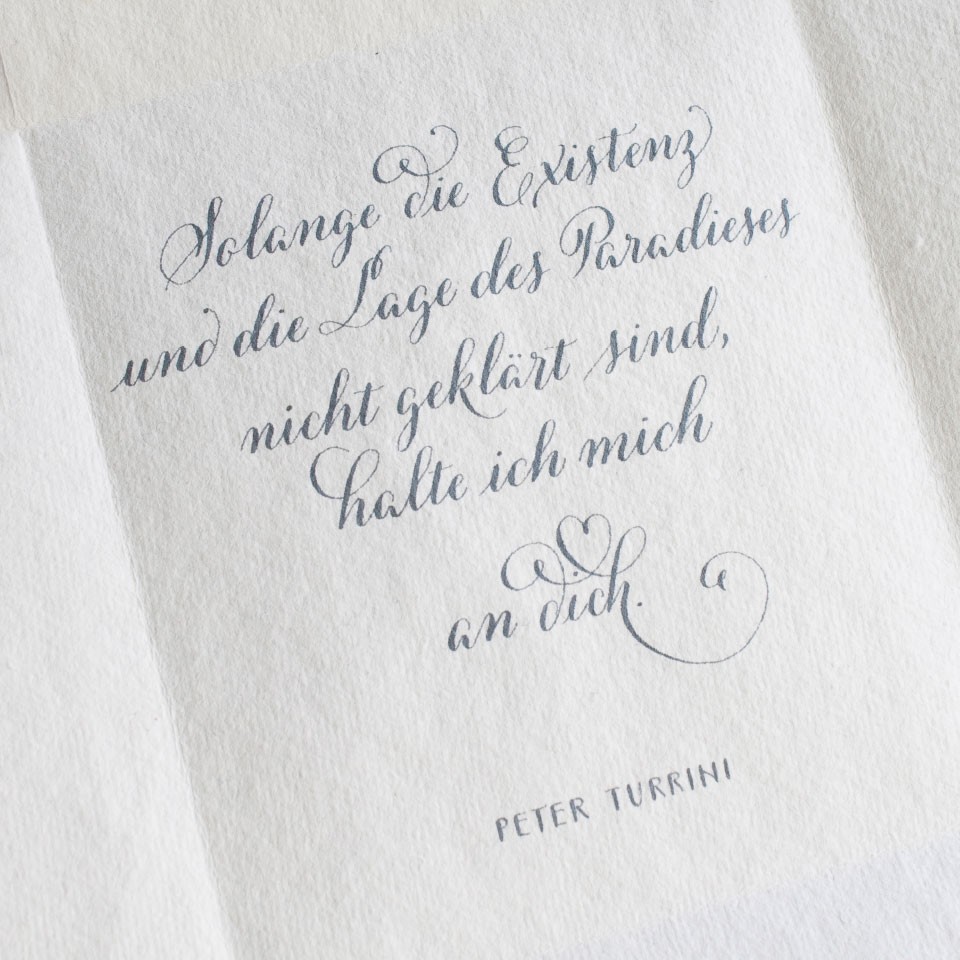 Solange die Existenz
und die Lage des Paradieses
nicht geklärt sind,
halte ich mich
an dich.
PETER TURRINI